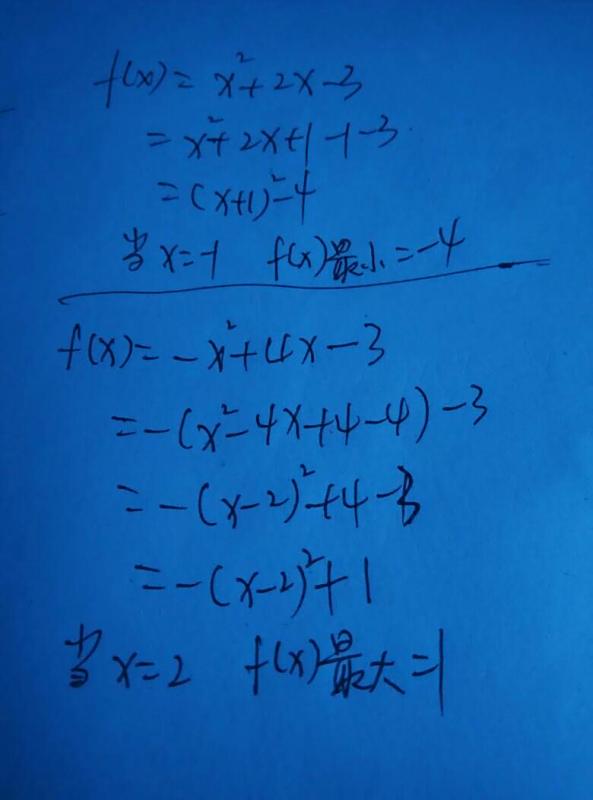 f(x)=x²+2x-3
=x²+2x+1-1-3
=(x+1)²-4
当x=-1 f(x)最小=-4
f(x)=-x²+4x-3
=-(x²-4x+4-4)-3
=-(x-2)²+4-3
=-(x-2)²+1
当x=2 f(x)最大=1